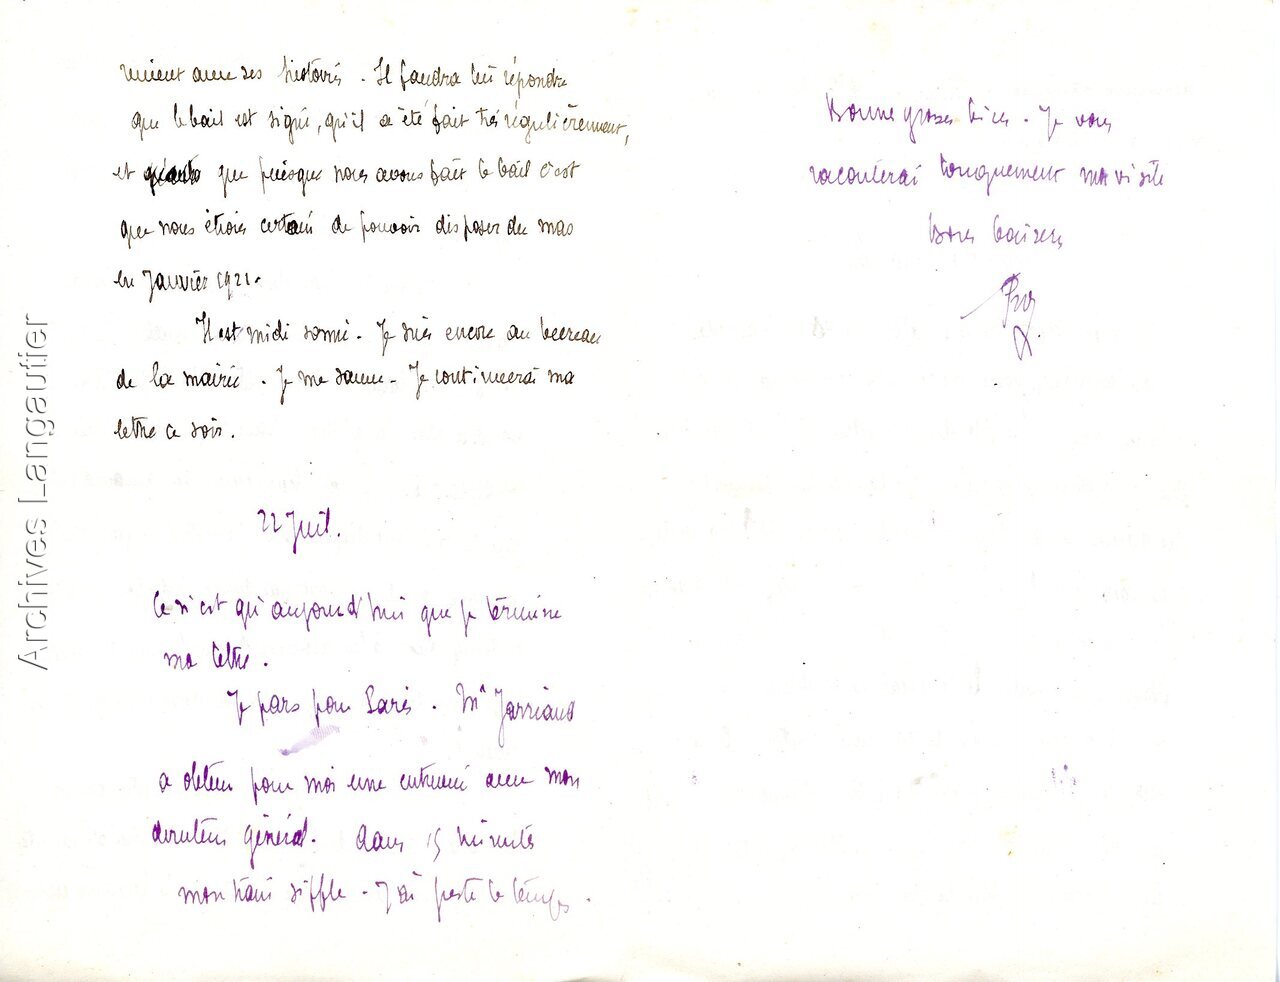 vient avec ses histoires. Il faudra lui répondre
que le bail est signé, qu'il a été fait très régulièrement,
et que puisque nous avons fait le bail c'est
que nous étions certains de pouvoir disposer du mas
en Janvier 1921.
Il est midi sonné. Je suis encore au bureau
de la mairie. Je me sauve. Je continuerai ma
lettre ce soir.
22 Juil.
Ce n'est qu'aujourd'hui que je termine
ma lettre.
Je pars pour Paris. Mr Jarriand
a obtenu pour moi une entrevue avec mon
directeur général. Dans 15 minutes
mon train siffle. J'ai juste le temps.
Bonne grosses bises. Je vous
raconterai longuement ma visite
Bons baisers
Archives Langautier